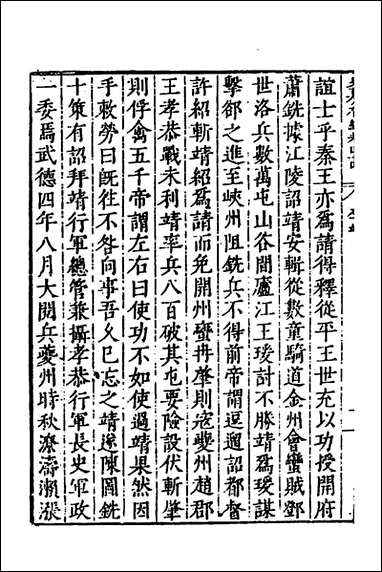 誼士乎秦王亦爲請得釋從平王世充以功授開府
蕭銑據江陵詔靖安輯從數童騎道金州會蠻賊鄧
世洛兵數萬屯山谷間廬江王瑗討不勝靖爲瑗謀
擊郤之進至峽州阻銑兵不得前帝謂逗遛詔都督
許紹斬靖紹爲請而免開州蠻冉肇則寇夔州趙郡
王孝恭戰未利靖率兵八百破其屯要險設伏斬肇
則俘禽五千帝謂左右曰使功不如使過靖果然因
手敕勞曰既往不咎向事吾久已忘之靖遂陳圖銑
十策有詔拜靖行軍總管兼攝孝恭行軍長史軍政
一委焉武德四年八月大閱兵夔州時秋潦濤瀨漲